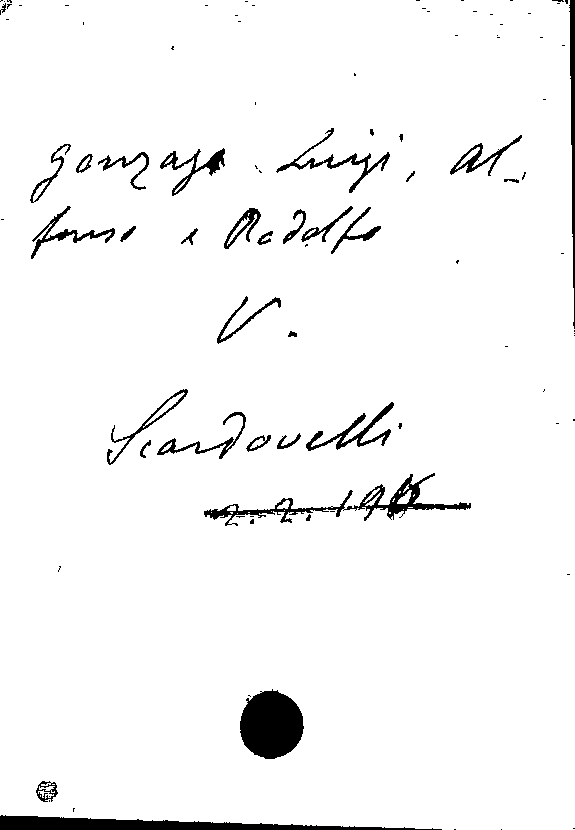 Gonzaga Luigi, Al-
fonso e Rodolfo
V.
Scardovelli